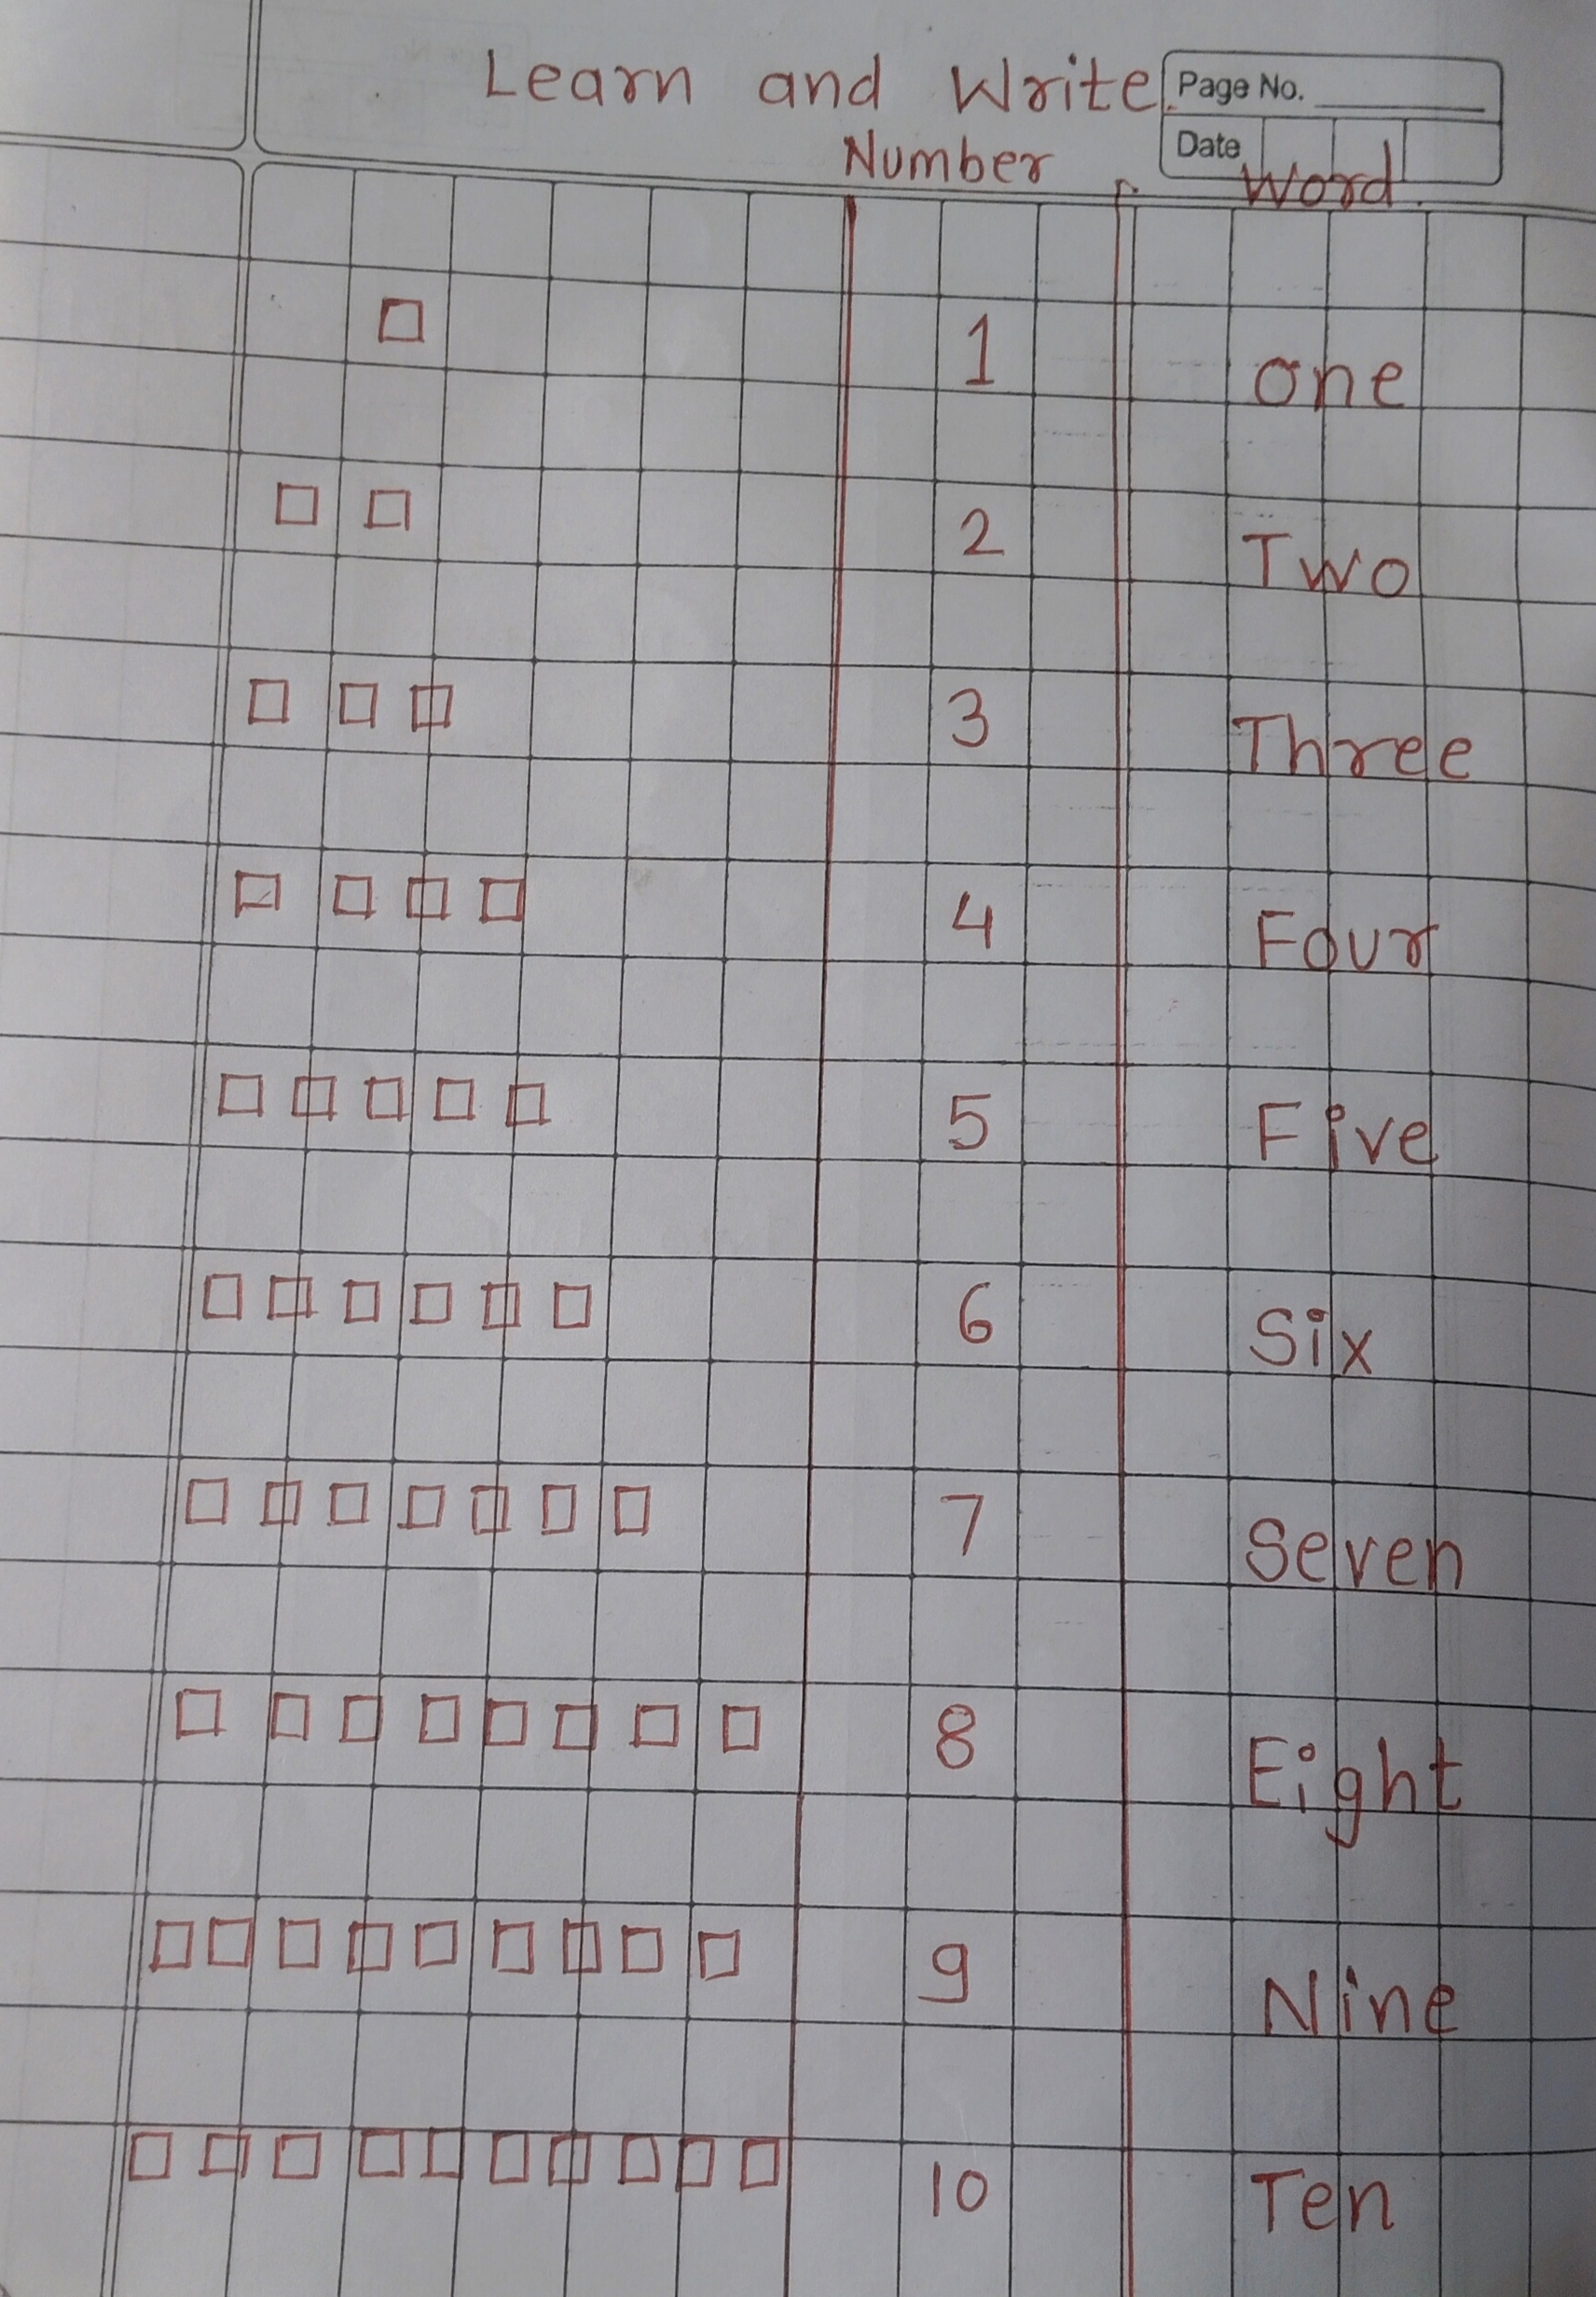 Learn and Write
Page No.
Date
Number Word
1 one
2 Two
3 Three
4 Four
5 Five
6 Six
7 Seven
8 Eight
9 Nine
10 Ten